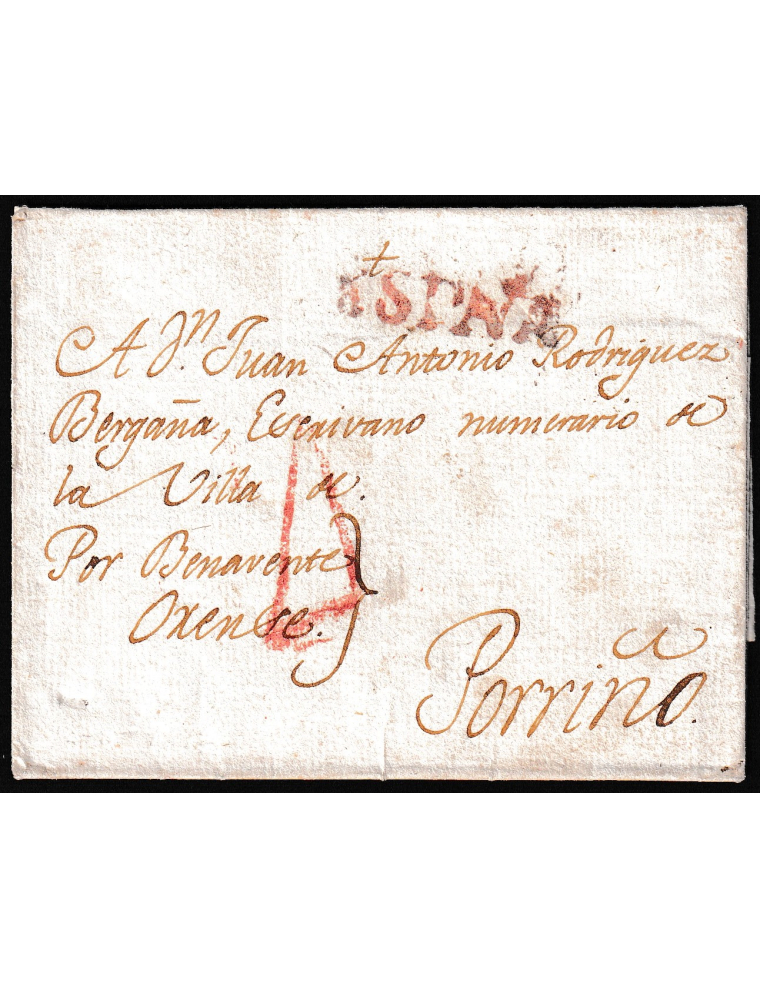 A Dn. Juan Antonio Rodriguez
Bergaña, Escrivano numerario de
la Villa de.
Por Benavente
Orense.
Porriño.